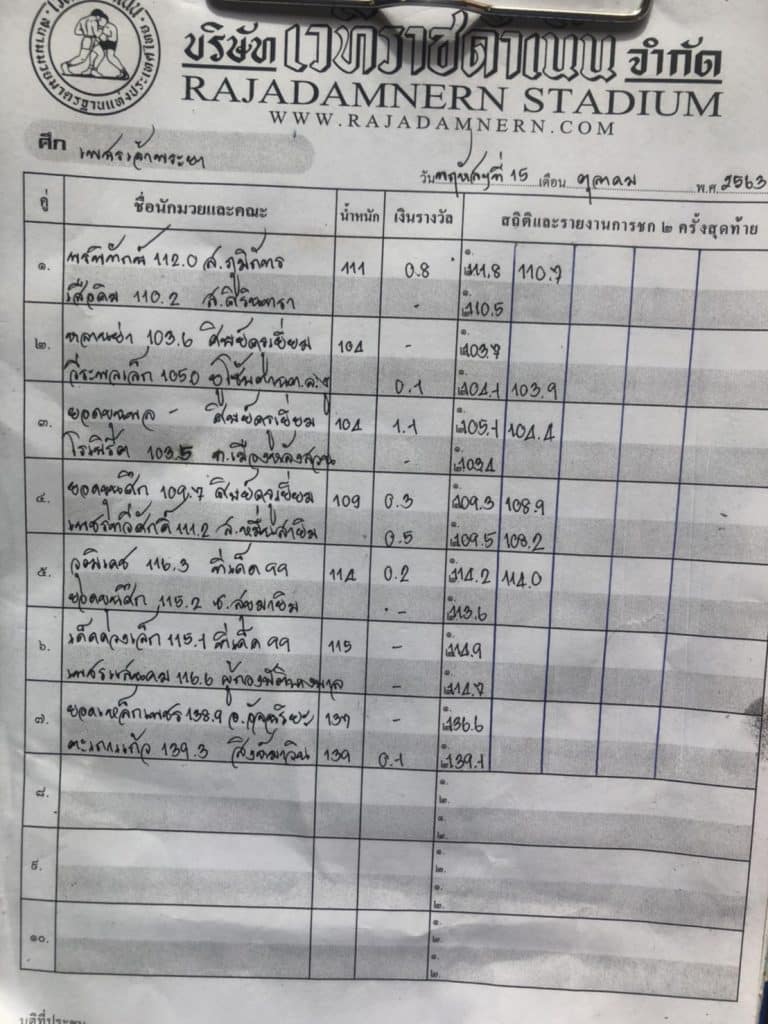 บริษัท เวทีราชดำเนิน จำกัด
RAJADAMNERN STADIUM
WWW.RAJADAMNERN.COM
ศึก เพชรเจ้าพระยา
วันพฤหัสฯที่ 15 เดือน ตุลาคม พ.ศ. 2563
คู่ ชื่อนักมวยและคณะ น้ำหนัก เงินรางวัล สถิติและรายงานการชก ๒ ครั้งสุดท้าย
๑. 112.0 ส.ภูมิภัทร 111 0.8 ๑. 111.8 110.7
เสือคิม 110.2 ส.ศิรินทรา - ๒. 110.5
๒. หลานย่า 103.6 ศิษย์ครูเยี่ยม 104 - ๑. 103.7
วีระพลเล็ก 105.0 0.1 104.1 103.9
๓. ยอดขุนพล - ศิษย์ครูเยี่ยม 104 1.1 ๑. 105.1 104.4
โรเบิร์ต 103.5 ท.เมืองหลังสวน - 103.4
๔. ยอดขุนศึก 109.7 ศิษย์ครูเยี่ยม 109 0.3 ๑. 109.3 108.9
เพชรทวีศักดิ์ 111.2 ส.หมื่นสายิม 0.5 109.5 108.2
๕. วุฒิเดช 116.3 ทีเด็ด99 114 0.2 ๑. 114.2 114.0
115.2 - ๑. 113.6
๖. 115.1 ทีเด็ด99 115 - ๑. 114.9
เพชรแสนคม 116.6 - ๑. 114.7
๗. ยอดเหล็กเพชร 138.9 อ.อัจฉริยะ 137 - ๑. 136.6
ตะเภาแก้ว 139.3 สิงห์มาวิน 139 0.1 139.1
๘. ๑.
๒.
๑.
๒.
๙. ๑.
๒.
๑.
๒.
๑๐. ๑.
๒.
๑.
๒.